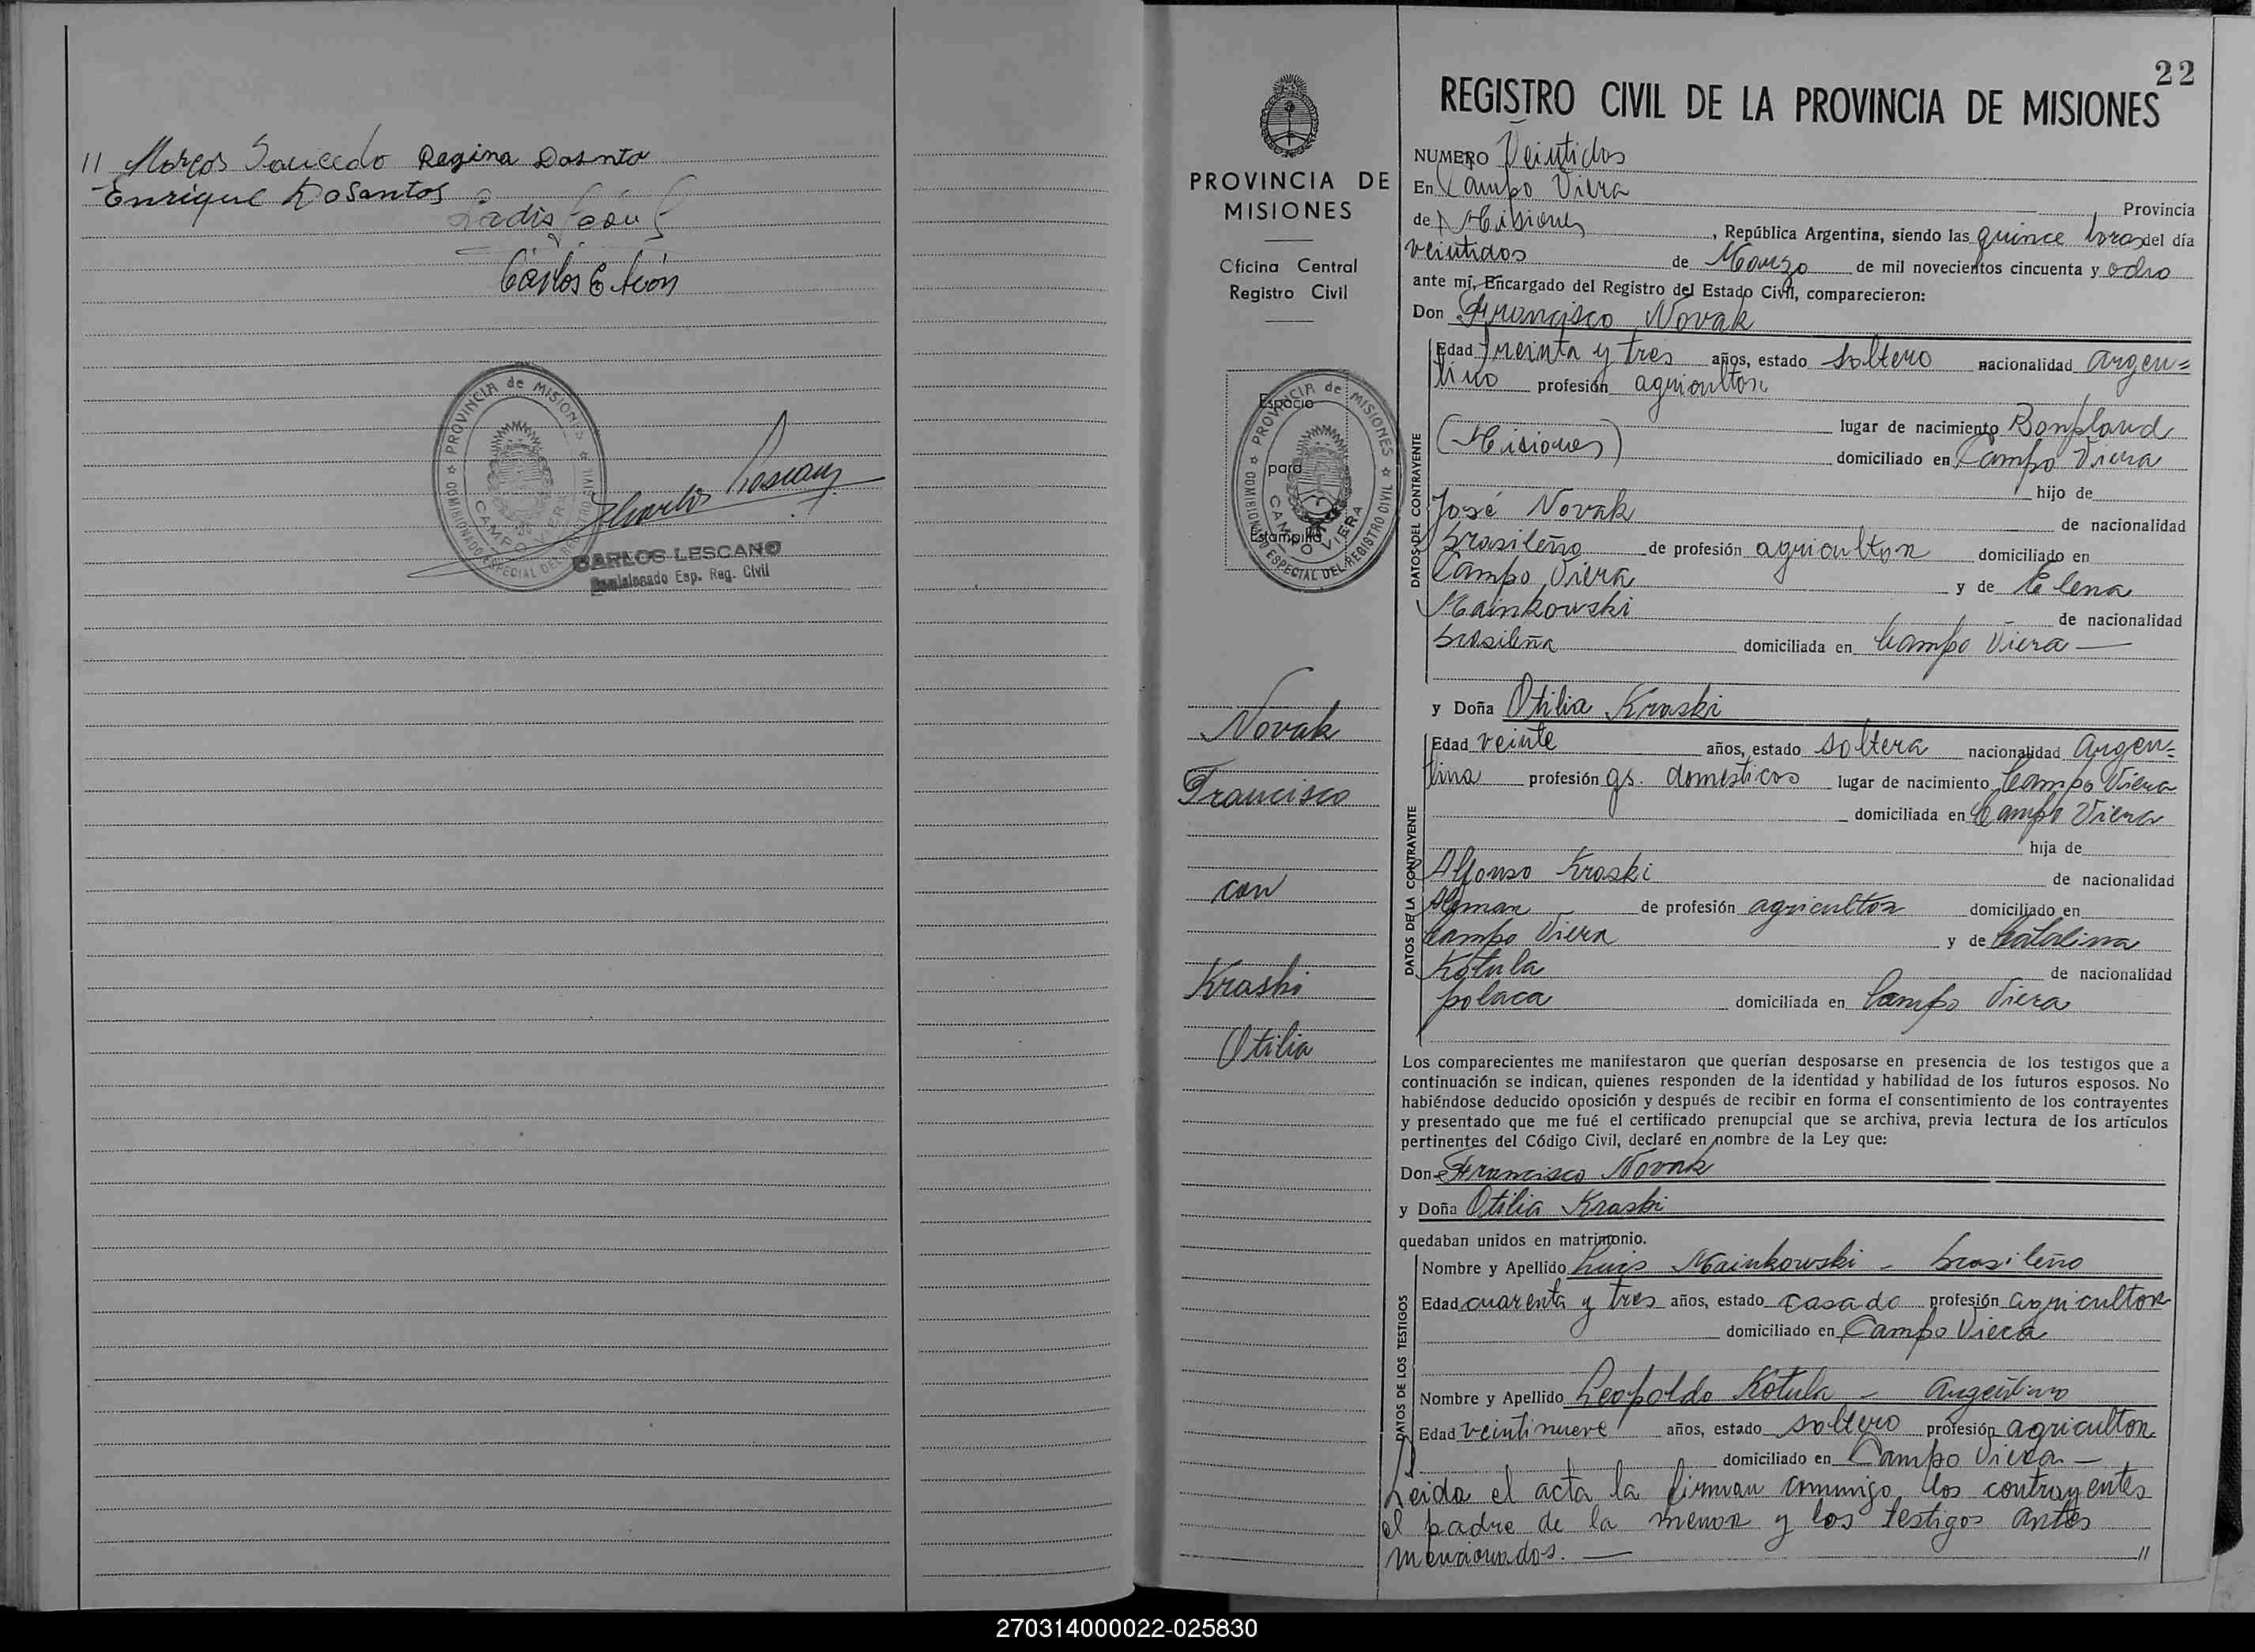 11 Marcos Saucedo Regina Dosnto
Enrique Dosantos
Ladis León
Carlos E León
PROVINCIA de MISIONES
COMISIONADO ESPECIAL DEL REGISTRO CIVIL
CAMPO VIERA
CARLOS LESCANO
Comisionado Esp. Reg. Civil
PROVINCIA DE
MISIONES
Oficina Central
Registro Civil
Espacio
para
Estampilla
PROVINCIA de MISIONES
COMISIONADO ESPECIAL DEL REGISTRO CIVIL
CAMPO VIERA
Novak
Francisco
con
Kraski
Otilia
22
REGISTRO CIVIL DE LA PROVINCIA DE MISIONES
NUMERO Veintidos
En Campo Viera Provincia
de Misiones, República Argentina, siendo las quince horas del día
veintidos de Marzo de mil novecientos cincuenta y ocho
ante mí, Encargado del Registro del Estado Civil, comparecieron:
Don Francisco Novak
DATOS DEL CONTRAYENTE
Edad treinta y tres años, estado soltero nacionalidad argen=
tino profesión agricultor
lugar de nacimiento Bonpland
(Misiones) domiciliado en Campo Viera
hijo de
José Novak de nacionalidad
brasileño de profesión agricultor domiciliado en
Campo Viera y de Elena
Mainkowski de nacionalidad
brasileña domiciliada en Campo Viera —
y Doña Otilia Kraski
DATOS DE LA CONTRAYENTE
Edad veinte años, estado soltera nacionalidad argen=
tina profesión qs. domesticos lugar de nacimiento Campo Viera
domiciliada en Campo Viera
hija de
Alfonso Kraski de nacionalidad
Aleman de profesión agricultor domiciliado en
Campo Viera y de Catalina
Kotula de nacionalidad
polaca domiciliada en Campo Viera
Los comparecientes me manifestaron que querían desposarse en presencia de los testigos que a
continuación se indican, quienes responden de la identidad y habilidad de los futuros esposos. No
habiéndose deducido oposición y después de recibir en forma el consentimiento de los contrayentes
y presentado que me fué el certificado prenupcial que se archiva, previa lectura de los artículos
pertinentes del Código Civil, declaré en nombre de la Ley que:
Don Francisco Novak
y Doña Otilia Kraski
quedaban unidos en matrimonio.
DATOS DE LOS TESTIGOS
Nombre y Apellido Luis Mainkowski - brasileño
Edad cuarenta y tres años, estado casado profesión agricultor
domiciliado en Campo Viera
Nombre y Apellido Leopoldo Kotula - Argentino
Edad veintinueve años, estado soltero profesión agricultor
domiciliado en Campo Viera —
Leida el acta la firman conmigo los contrayentes
el padre de la menor y los testigos antes
mencionados. — 11
270314000022-025830